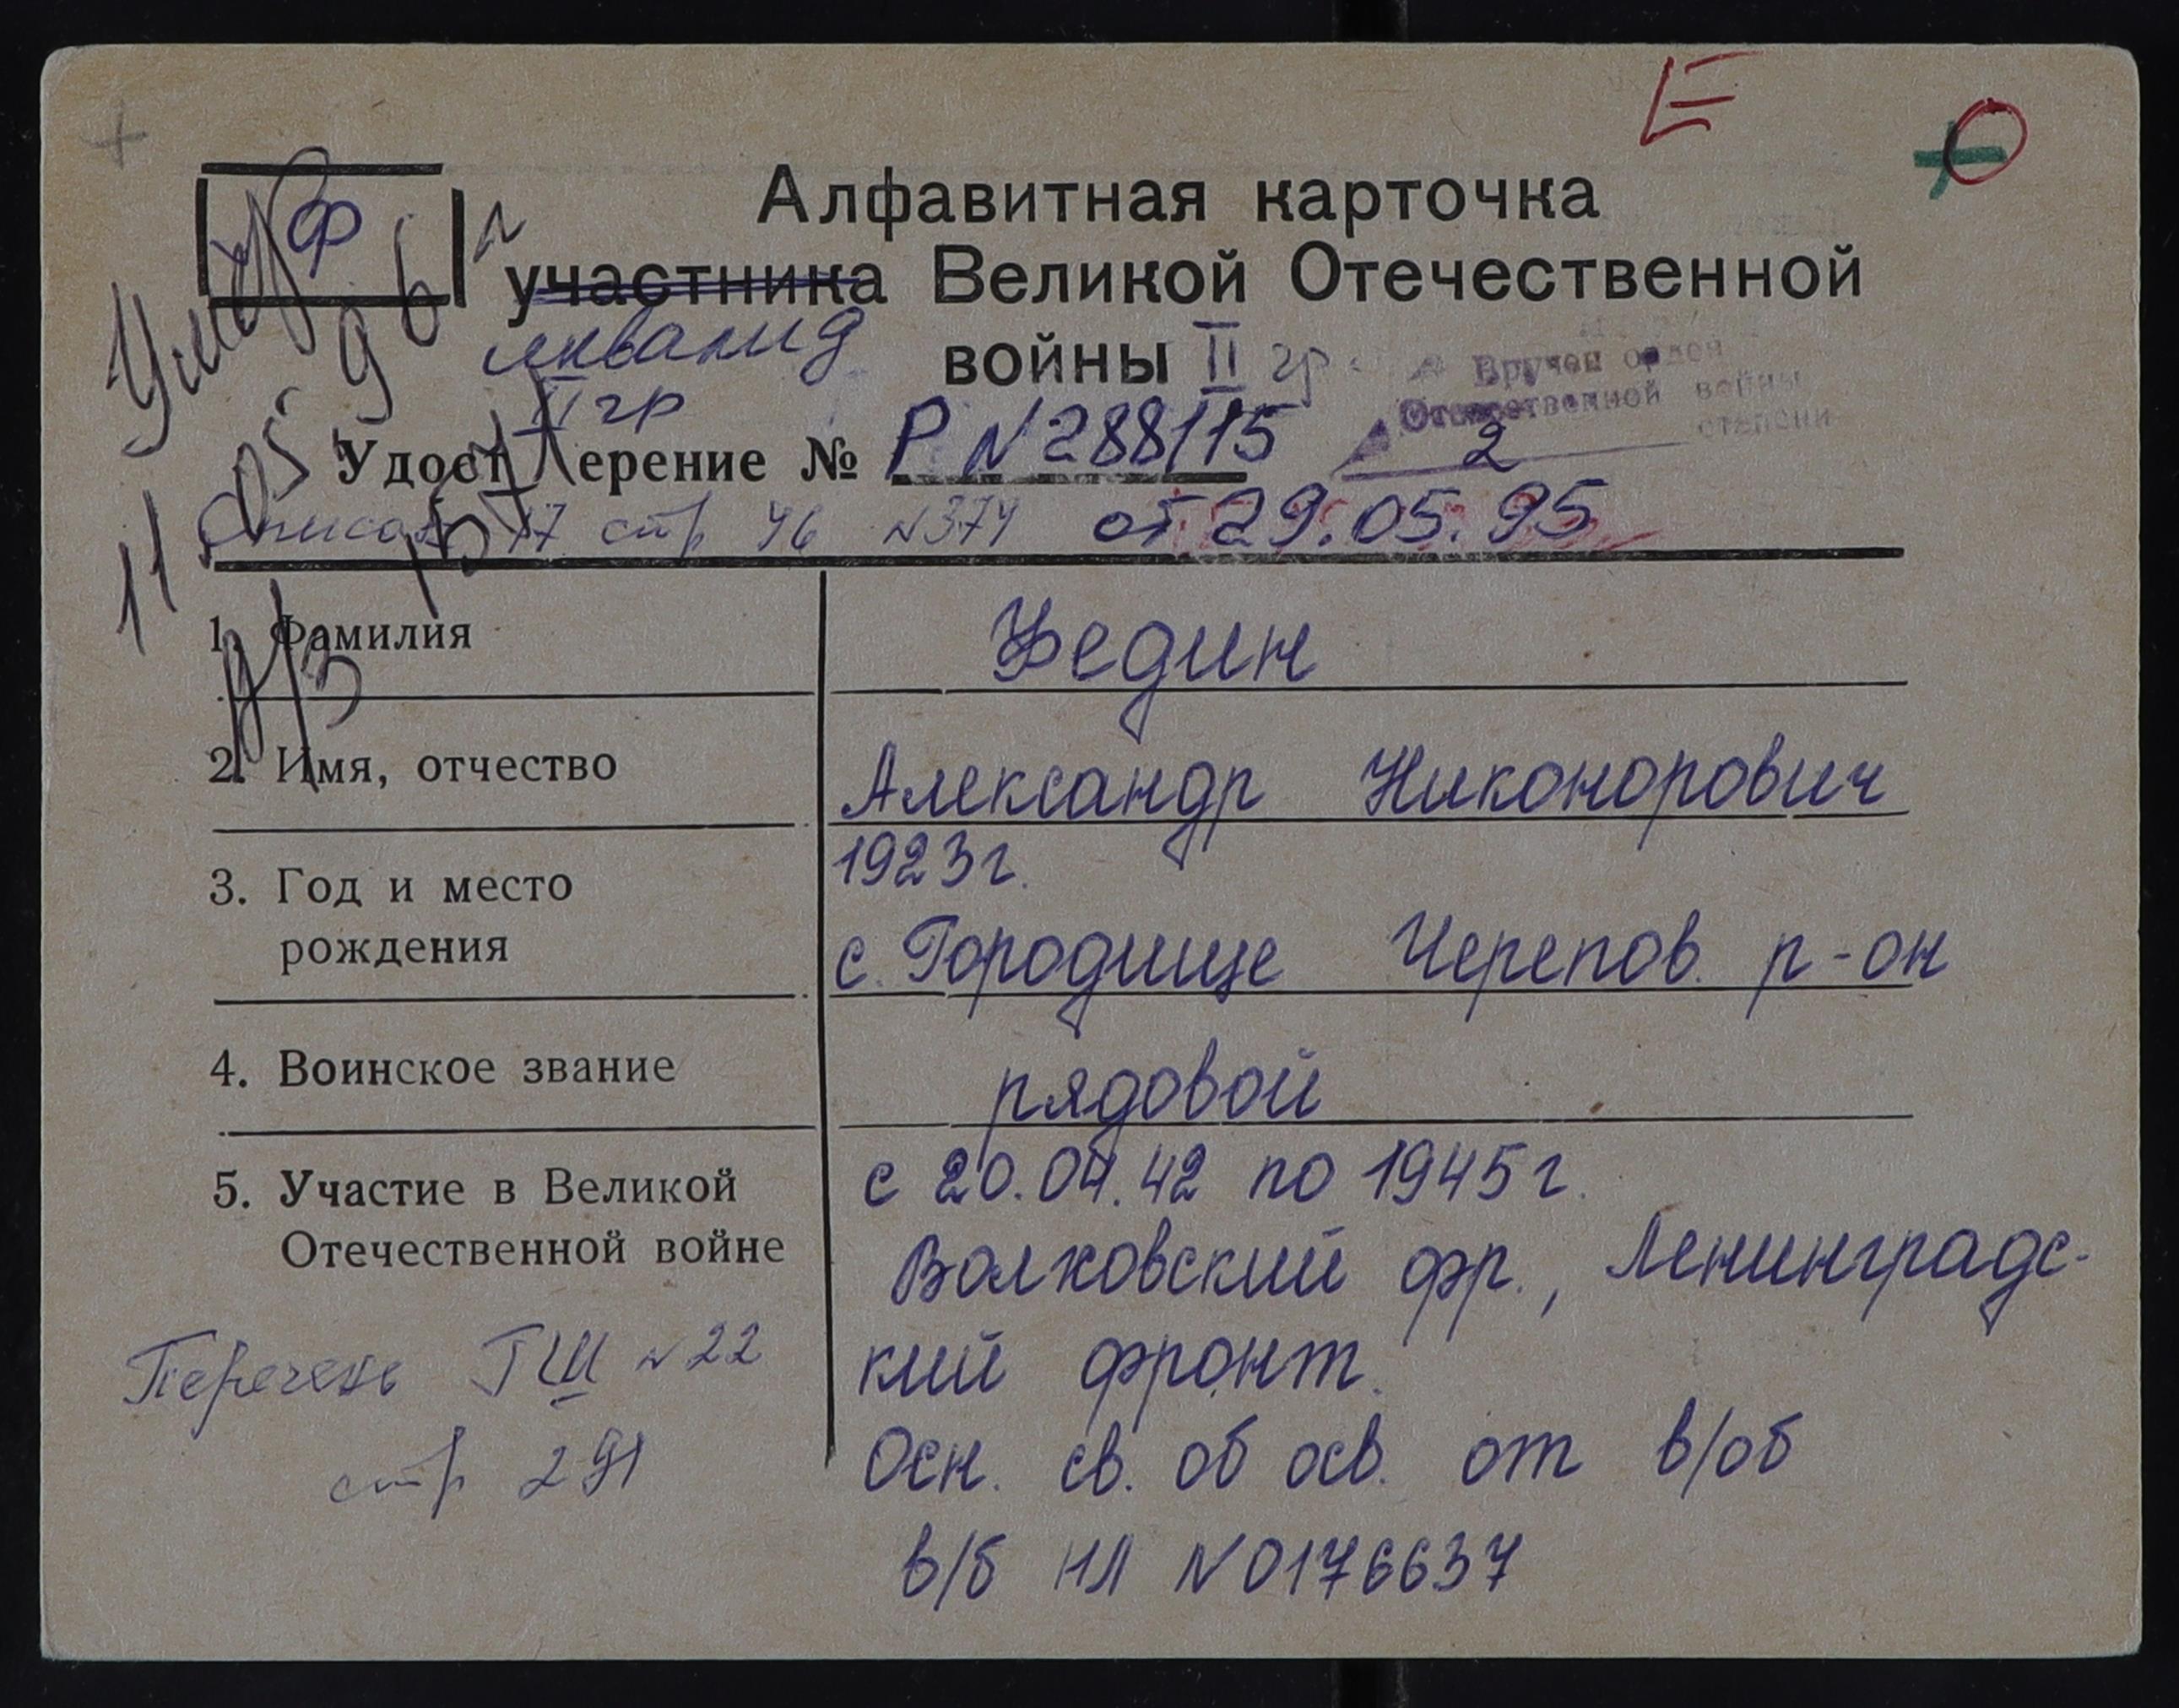 Е
Ф
Алфавитная карточка
участника Великой Отечественной
инвалид войны II гр.
II гр
Вручен орден
Отечественной войны
2 степени
Умер
11.05.96 г
Удостоверение № Р N 288115
Список 17 стр 46 N374 от 29.05.95
1. Фамилия Федин
2. Имя, отчество Александр Никонорович
3. Год и место 1923г.
рождения с. Городище Черепов. р-он
4. Воинское звание рядовой
5. Участие в Великой с 20.04.42 по 1945г.
Отечественной войне Волховский фр., Ленинградс-
кий фронт.
Перечень ГШ N22
стр 291
Осн. св. об осв. от в/об
в/б НЛ N0176637